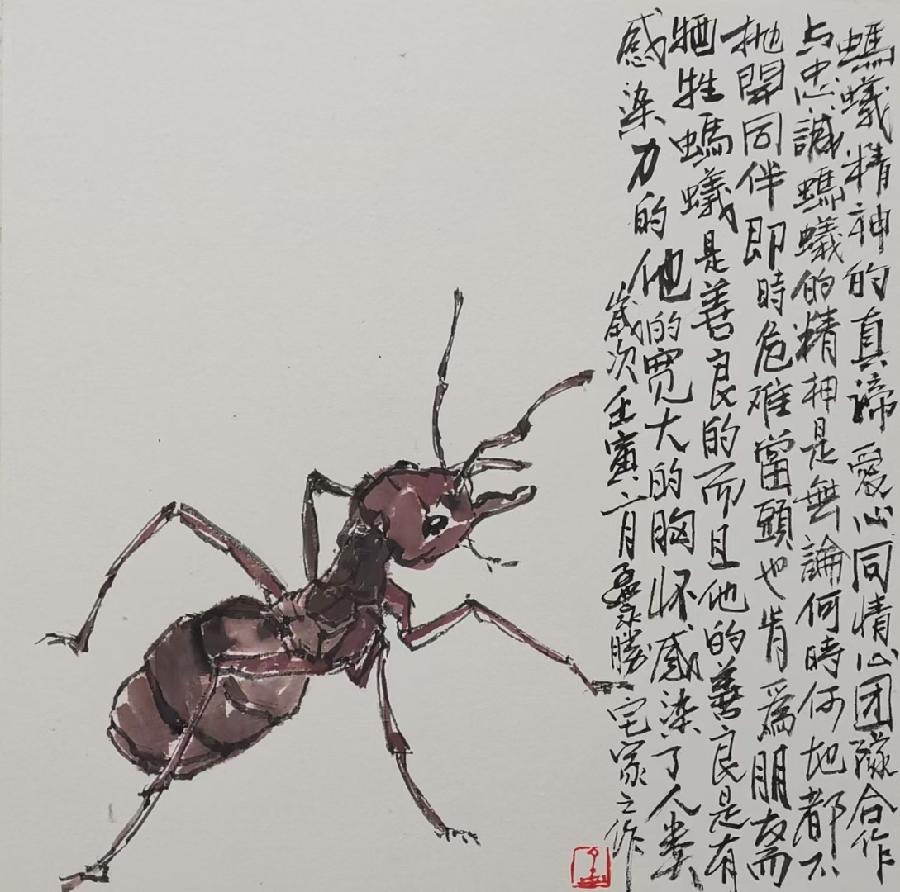 螞蟻精神的真諦愛心同情心团隊合作
与忠誠螞蟻的精神是無論何時何地都不
抛開同伴即時危难當頭也肯爲朋友而
牺牲螞蟻是善良的而且他的善良是有
感染力的他的宽大的胸怀感染了人类
歲次壬寅六月聂勝一宅家之作